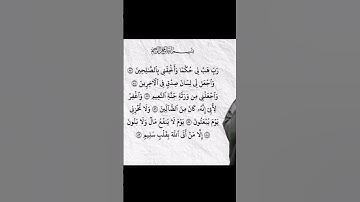 بسم الله الرحمن الرحيم
رَبِّ هَبْ لِى حُكْمًا وَأَلْحِقْنِى بِٱلصَّٰلِحِينَ
وَٱجْعَل لِّى لِسَانَ صِدْقٍ فِى ٱلْءَاخِرِينَ
وَٱجْعَلْنِى مِن وَرَثَةِ جَنَّةِ ٱلنَّعِيمِ وَٱغْفِرْ
لِأَبِىٓ إِنَّهُۥ كَانَ مِنَ ٱلضَّآلِّينَ وَلَا تُخْزِنِى
يَوْمَ يُبْعَثُونَ يَوْمَ لَا يَنفَعُ مَالٌ وَلَا بَنُونَ
إِلَّا مَنْ أَتَى ٱللَّهَ بِقَلْبٍ سَلِيمٍ